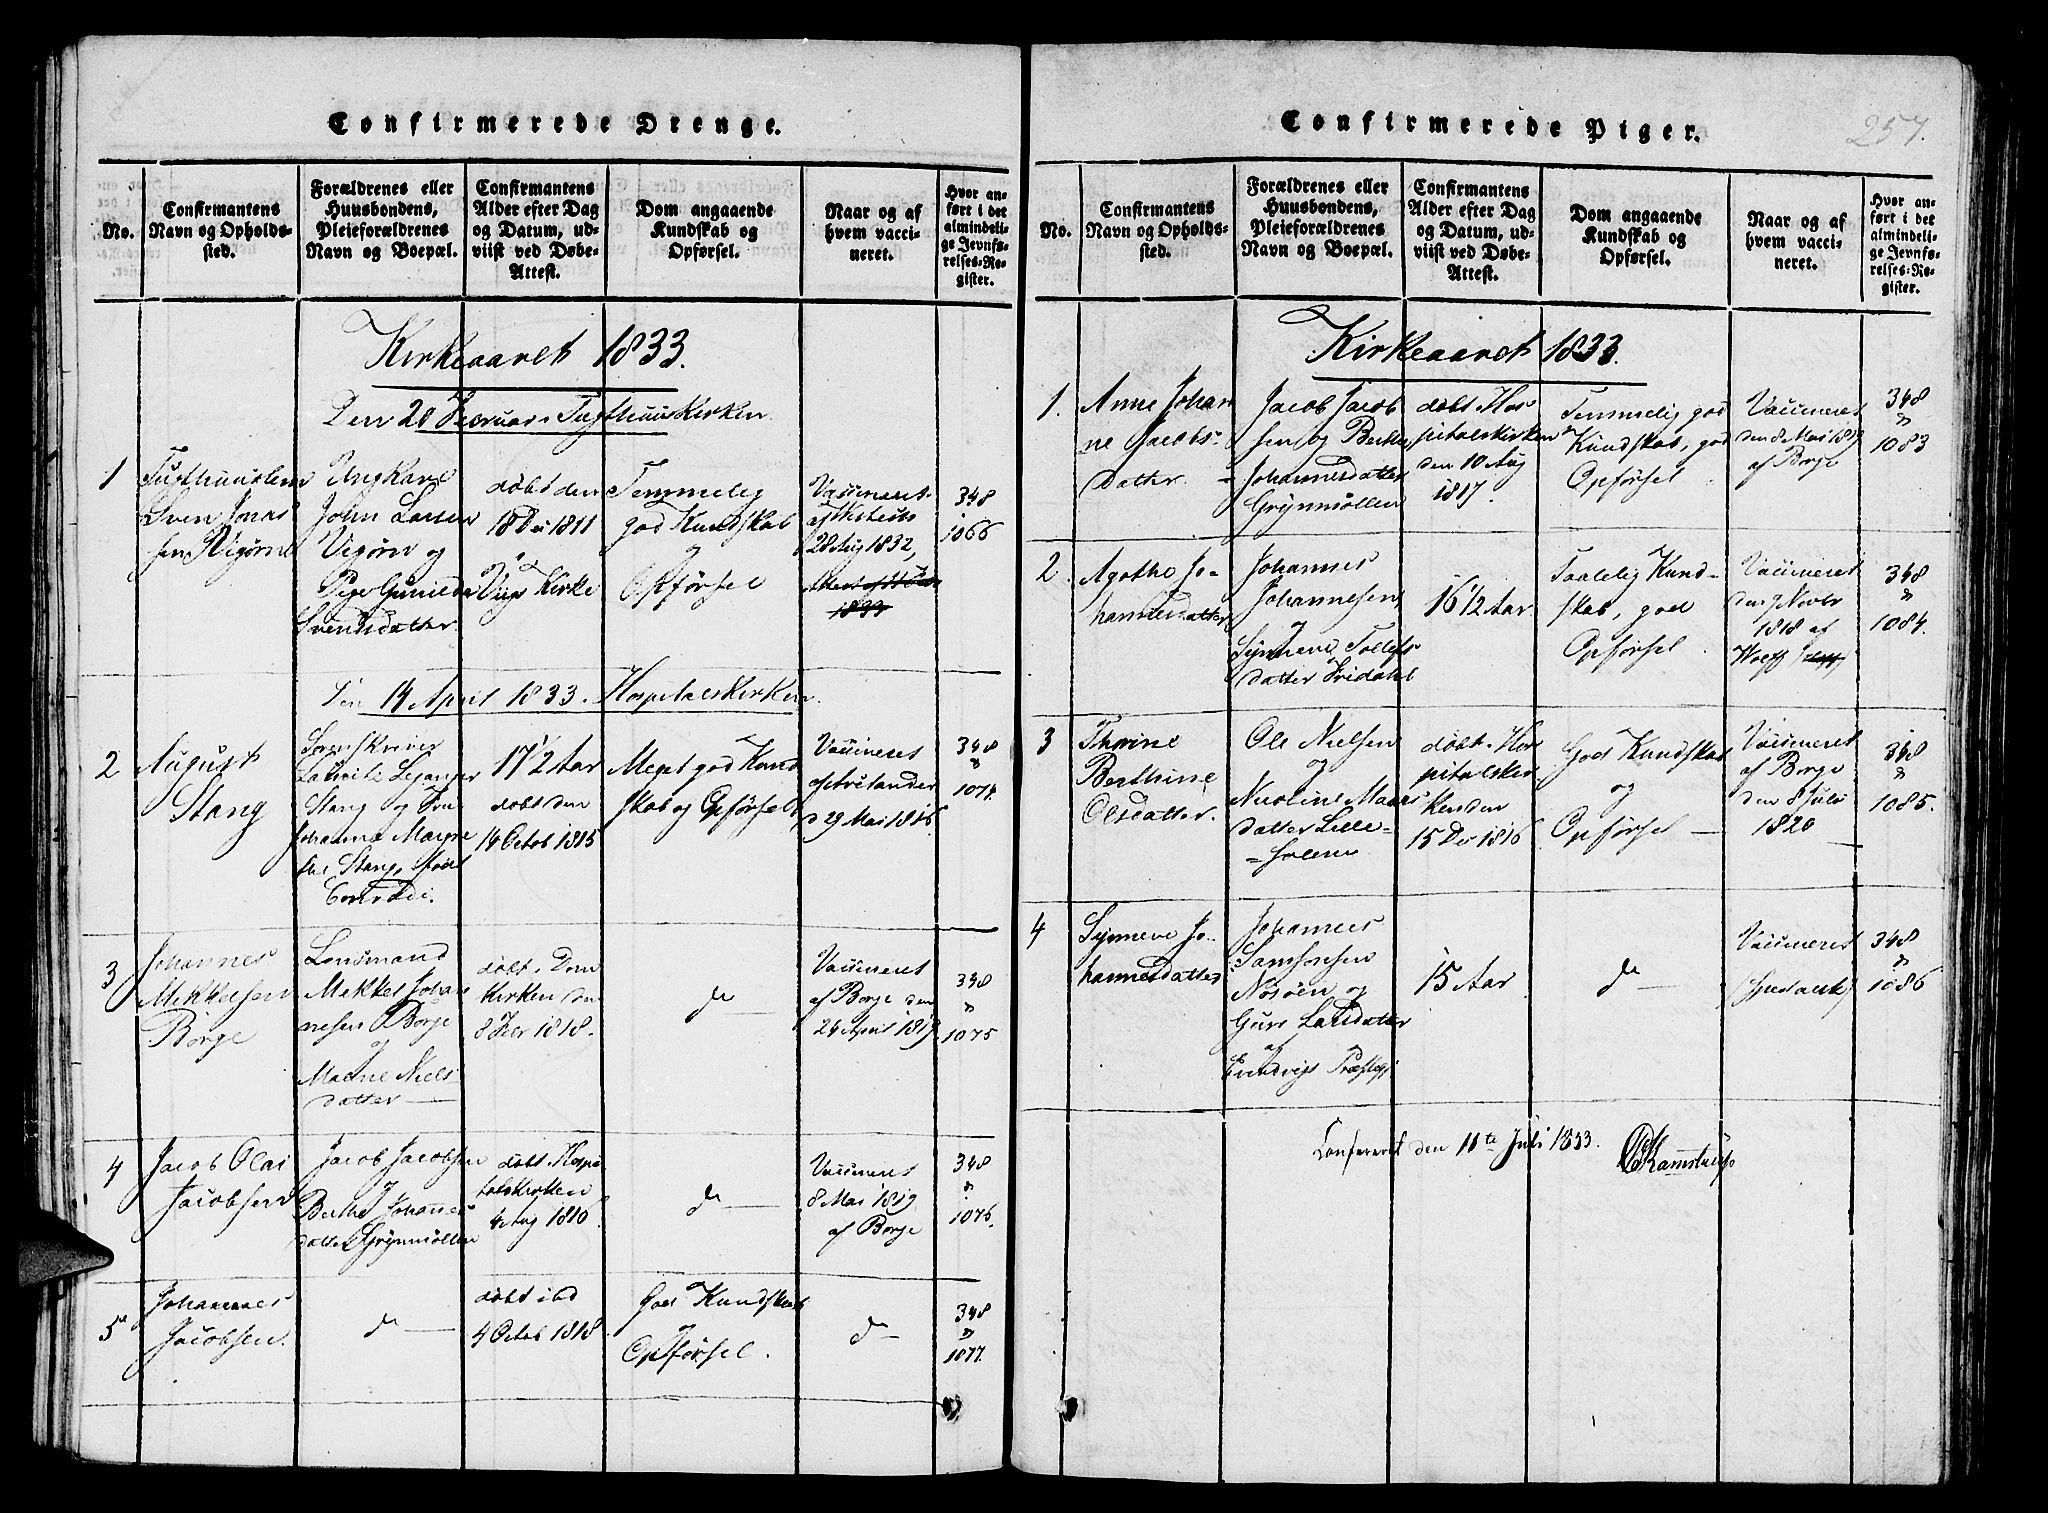 Confirmerede Drenge.
No.
Confirmantens
Navn og Opholds-
sted.
Forældrenes eller
Huusbondens,
Pleieforældrenes
Navn og Boepæl.
Confirmantens
Alder efter Dag
og Datum, ud-
viist ved Døbe-
Attest.
Dom angaaende
Kundskab og
Opførsel.
Naar og af
hvem vacci-
neret.
Hvor an-
ført i det
almindeli-
ge Jevnfø-
relses-Re-
gister.
Kirkeaaret 1833.
Den 20 Februar i Tugthuuskirken
1
Sven Jonas
sen Vigørne
Ungkarl
John Larsen
Vigørn og
Pige Gunilda
Svensdatter.
døbt den
18 De 1811
i
Vigs Kirke
Temmelig
god Kundskab
og
Opførsel
Vaccineret
28 Aug 1832,
1833
348
1066
Den 14 April 1833. Hospitalskirken.
2
August
Stang
Sorenskriver
Lauritz Lejanger
Stang og Fru
Johanna Margre
the Stang, født
Conradi.
17 1/2 Aar
døbt den
14 Octob 1815
Meget god Kund
skab og Opførsel
Vaccineret
d 29 Mai 1816
348
"
1074.
3
Johannes
Mikkelsen
Borge
Lensmand
Mekkel Johan
nesen Borge
og
Magne Niels
datter
døbt i Dom
kirken den
8 Febr 1818.
do
Vaccineret
af Borge den
24 April 1819
348
"
1075
4
Jacob Olai
Jacobsen
Jacob Jacobsen
og
Berthe Johannes
datter Grynmøllen
døbt i Hospi
talskirken
4 Aug 1816.
do
Vaccineret
8 Mai 1819
af Borge
348
"
1076.
5
Johannes
Jacobsen.
do
døbt i bd
4 Octob 1818
God Kundskab
og
Opførsel.
do
348
"
1077.
Confirmerede Piger.
257.
No.
Confirmantens
Navn og Opholds-
sted.
Forældrenes eller
Huusbondens,
Pleieforældrenes
Navn og Boepæl.
Confirmantens
Alder efter Dag
og Datum, ud-
viist ved Døbe-
Attest.
Dom angaaende
Kundskab og
Opførsel.
Naar og af
hvem vacci-
neret.
Hvor an-
ført i det
almindeli-
ge Jevnfø-
relses-Re-
gister.
Kirkeaaret 1833.
1.
Anne Johan
ne Jacobs-
datter
Jacob Jacob
sen og Berthe
Johannesdatter
Grynmøllen
døbt i Hos
pitalskirken
den 10 Aug
1817.
Temmelig god
Kundskab, god
Opførsel
Vaccineret
den 8 Mai 1819
af Borge
348
"
1083
2.
Agothe Jo-
hannesdatter
Johannes
Johannesen
og
Synneve Tollefs
datter Fridahl
16 1/2 Aar
Taalelig Kund-
skab, god
Opførsel
Vaccineret
den 9 Novbr
1818 af
Wolff
348
"
1084.
3
Thorine
Berthine
Olsdatter.
Ole Nielsen
og
Nicoline Mads
datter Lille-
døbt i Hos
pitalskir
ken den
15 De 1816
God Kundskab
og
Opførsel
Vaccineret
af Borge
den 8 Juli
1820
348
"
1085.
4
Synneve Jo-
hannesdatter
Johannes
Samsonsen
Nosøen og
Guro Larsdatter
af
Evindvigs Præstegj
15 Aar
do
Vaccineret
348
"
1086
Confereret den 11te Juli 1833.
Kamstrup